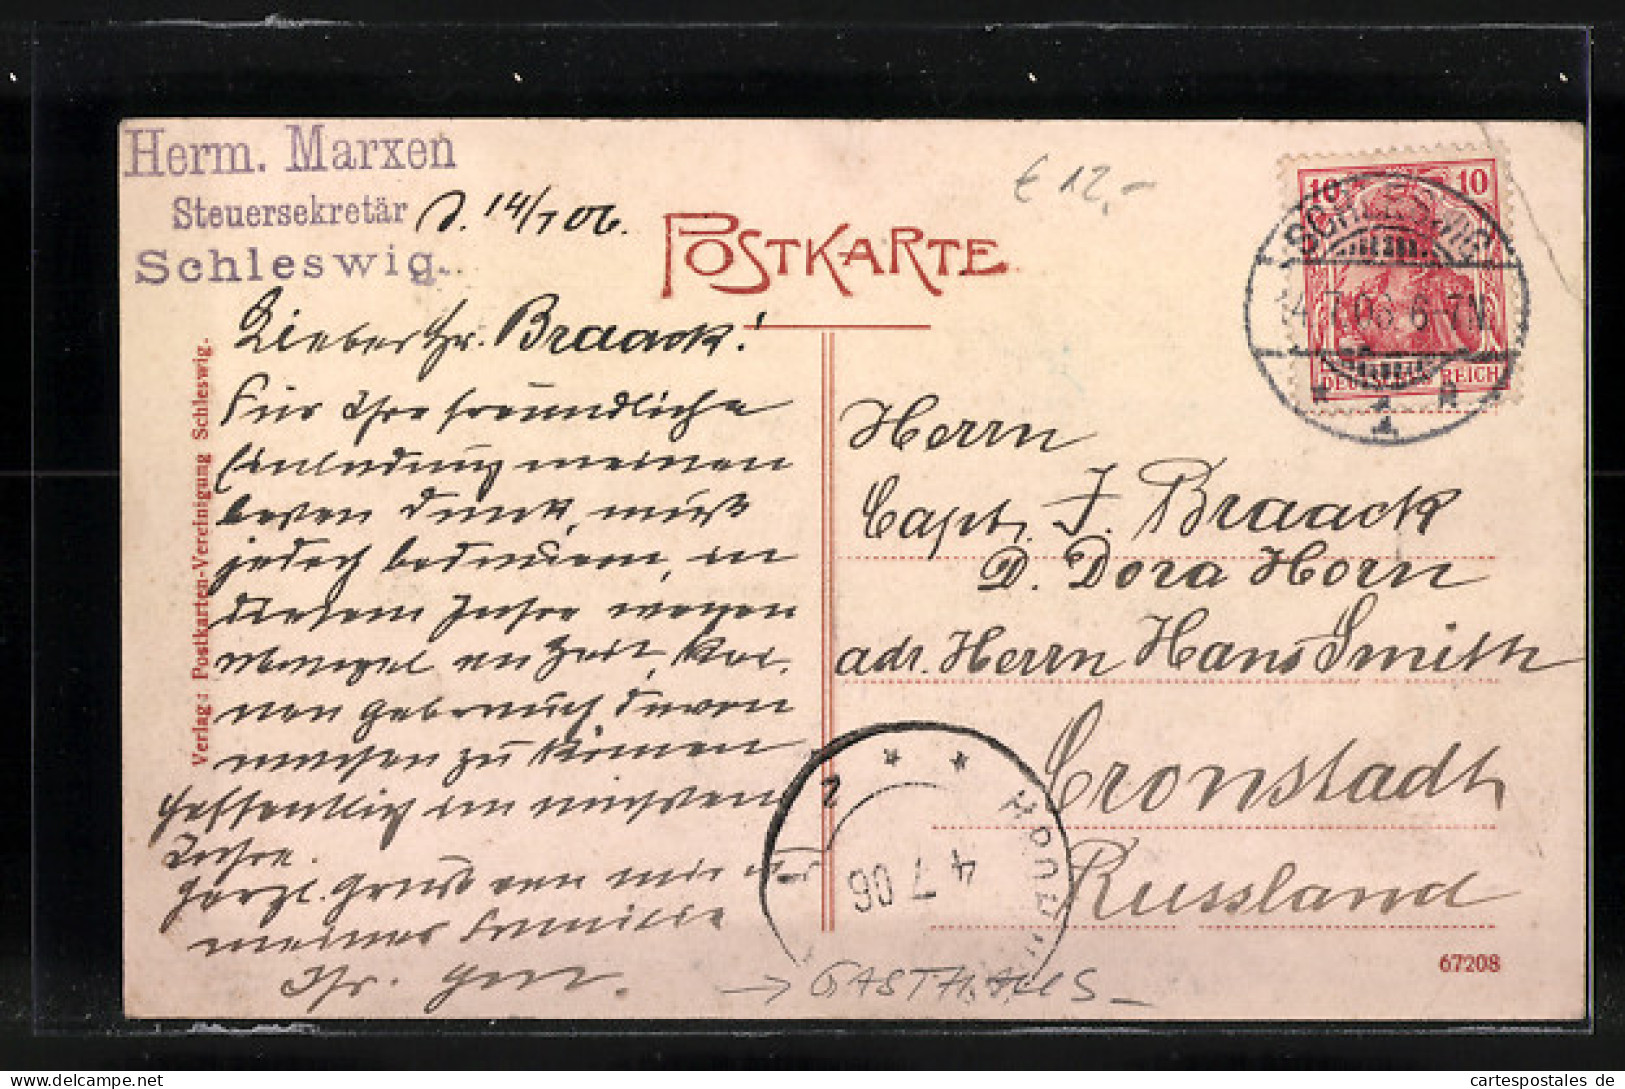 Herm. Marxen
Steuersekretär
Schleswig.
d. 14/7 06.
€ 12,-
POSTKARTE
10 10
SCHLESWIG
14.7.06 6-7N
DEUTSCHES REICH
* 1 *
Verlag: Postkarten-Vereinigung Schleswig.
Lieber Hr. Braack!
Für Ihre freundliche
Einladung meinen
besten Dank, muß
jedoch bedauern, in
diesem Jahre wegen
Mangel an Zeit, kei-
nen Gebrauch davon
machen zu können
Hoffentlich im nächsten
Jahre.
Herzl. Gruß von mir und
meiner Familie
Ihr
Herrn
Capt. J. Braack
D. Dora Horn
adr. Herrn Hans Smith
Cronstadt
Russland
2
4 7 06
67208
→ GASTHAUS
cartespostales de